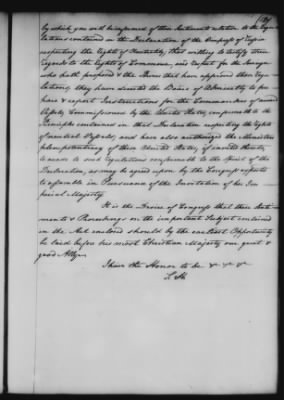 by which you will be informed of their Sentiments relative to the Regu
lations contained in the Declaration of the Empress of Russia
respecting the Rights of Neutrality, that willing to testify their
regard to the rights of Commerce, and respect for the Sovereign
who hath proposed & the Princes that have approved these Regu
lations, they have directed the Board of Admiralty to pre
pare & report Instructions for the Commanders of armed
Vessels, Commissioned by the United States, conformable to the
Principles contained in that Declaration respecting the rights
of neutral Vessels, and have also authorized the Ministers
plenipotentiary of these United States, if invited thereto,
to accede to such Regulations conformable to the Spirit of the
Declaration, as may be agreed upon by the Congress expected
to assemble in Pursuance of the Invitation of her Im
perial Majesty.
It is the Desire of Congress that these Senti
ments & Proceedings on the important Subject contained
in the Act enclosed should by the earliest Opportunity
be laid before his most Christian Majesty our great &
good Ally.
I have the Honor to be &c &c &c
S. H.